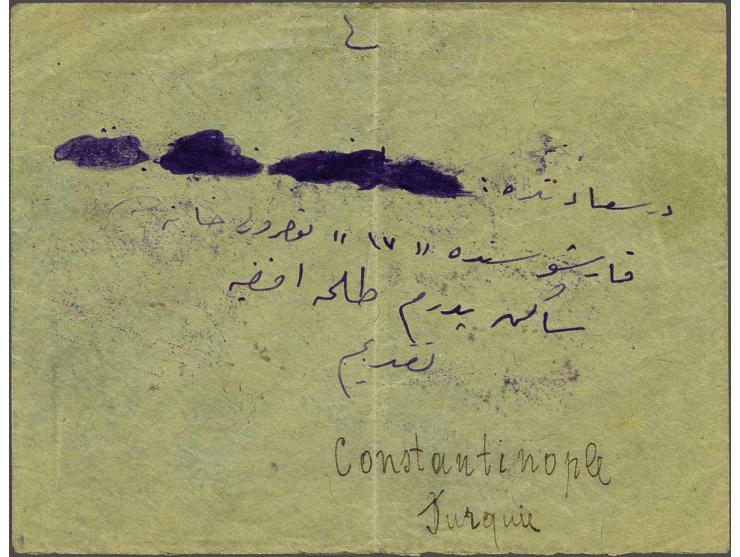 در سعادتده :
قارشوسنده " ١٧ " نومرولى خانه
ساكن پدرم طلحه افندیيه
تقديم
Constantinople
Turquie